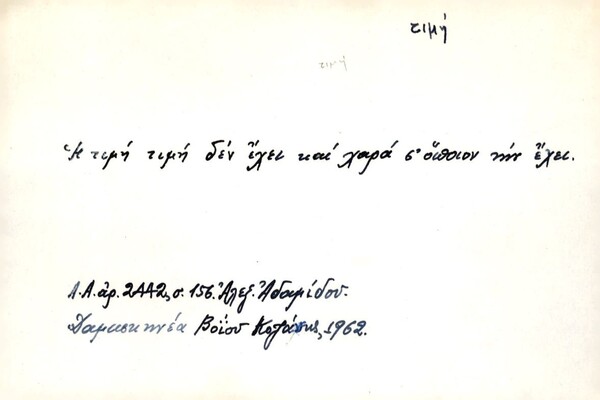 τιμή
τιμή
Ἡ τιμή τιμή δέν ἔχει καί χαρά σ' ὅποιον τήν ἔχει.
Λ.Α. ἀρ. 2442, σ. 156. Ἀλεξ. Ἀδαμίδου.
Δαμασκηνέα Βοΐου Κοζάνης, 1962.